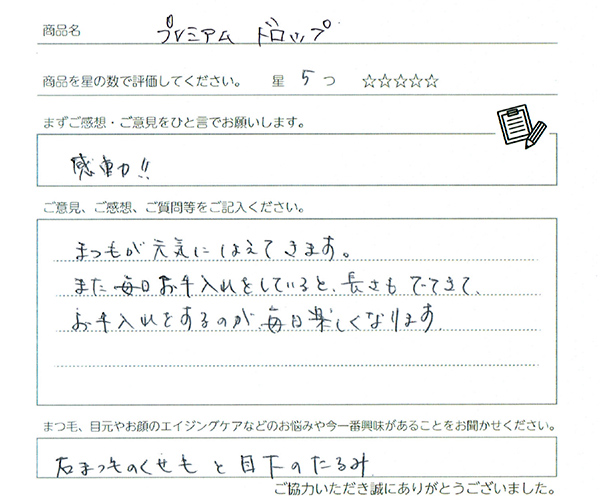 商品名 プレミアム ドロップ
商品を星の数で評価してください。 星 5 つ ☆☆☆☆☆
まずご感想・ご意見をひと言でお願いします。
感動!!
ご意見、ご感想、ご質問等をご記入ください。
まつもが元気にはえてきます。
また毎日お手入れをしていると、長さもでてきて、
お手入れをするのが、毎日楽しくなります。
まつ毛、目元やお顔のエイジングケアなどのお悩みや今一番興味があることをお聞かせください。
右まつものくせもと目下のたるみ
ご協力いただき誠にありがとうございました。